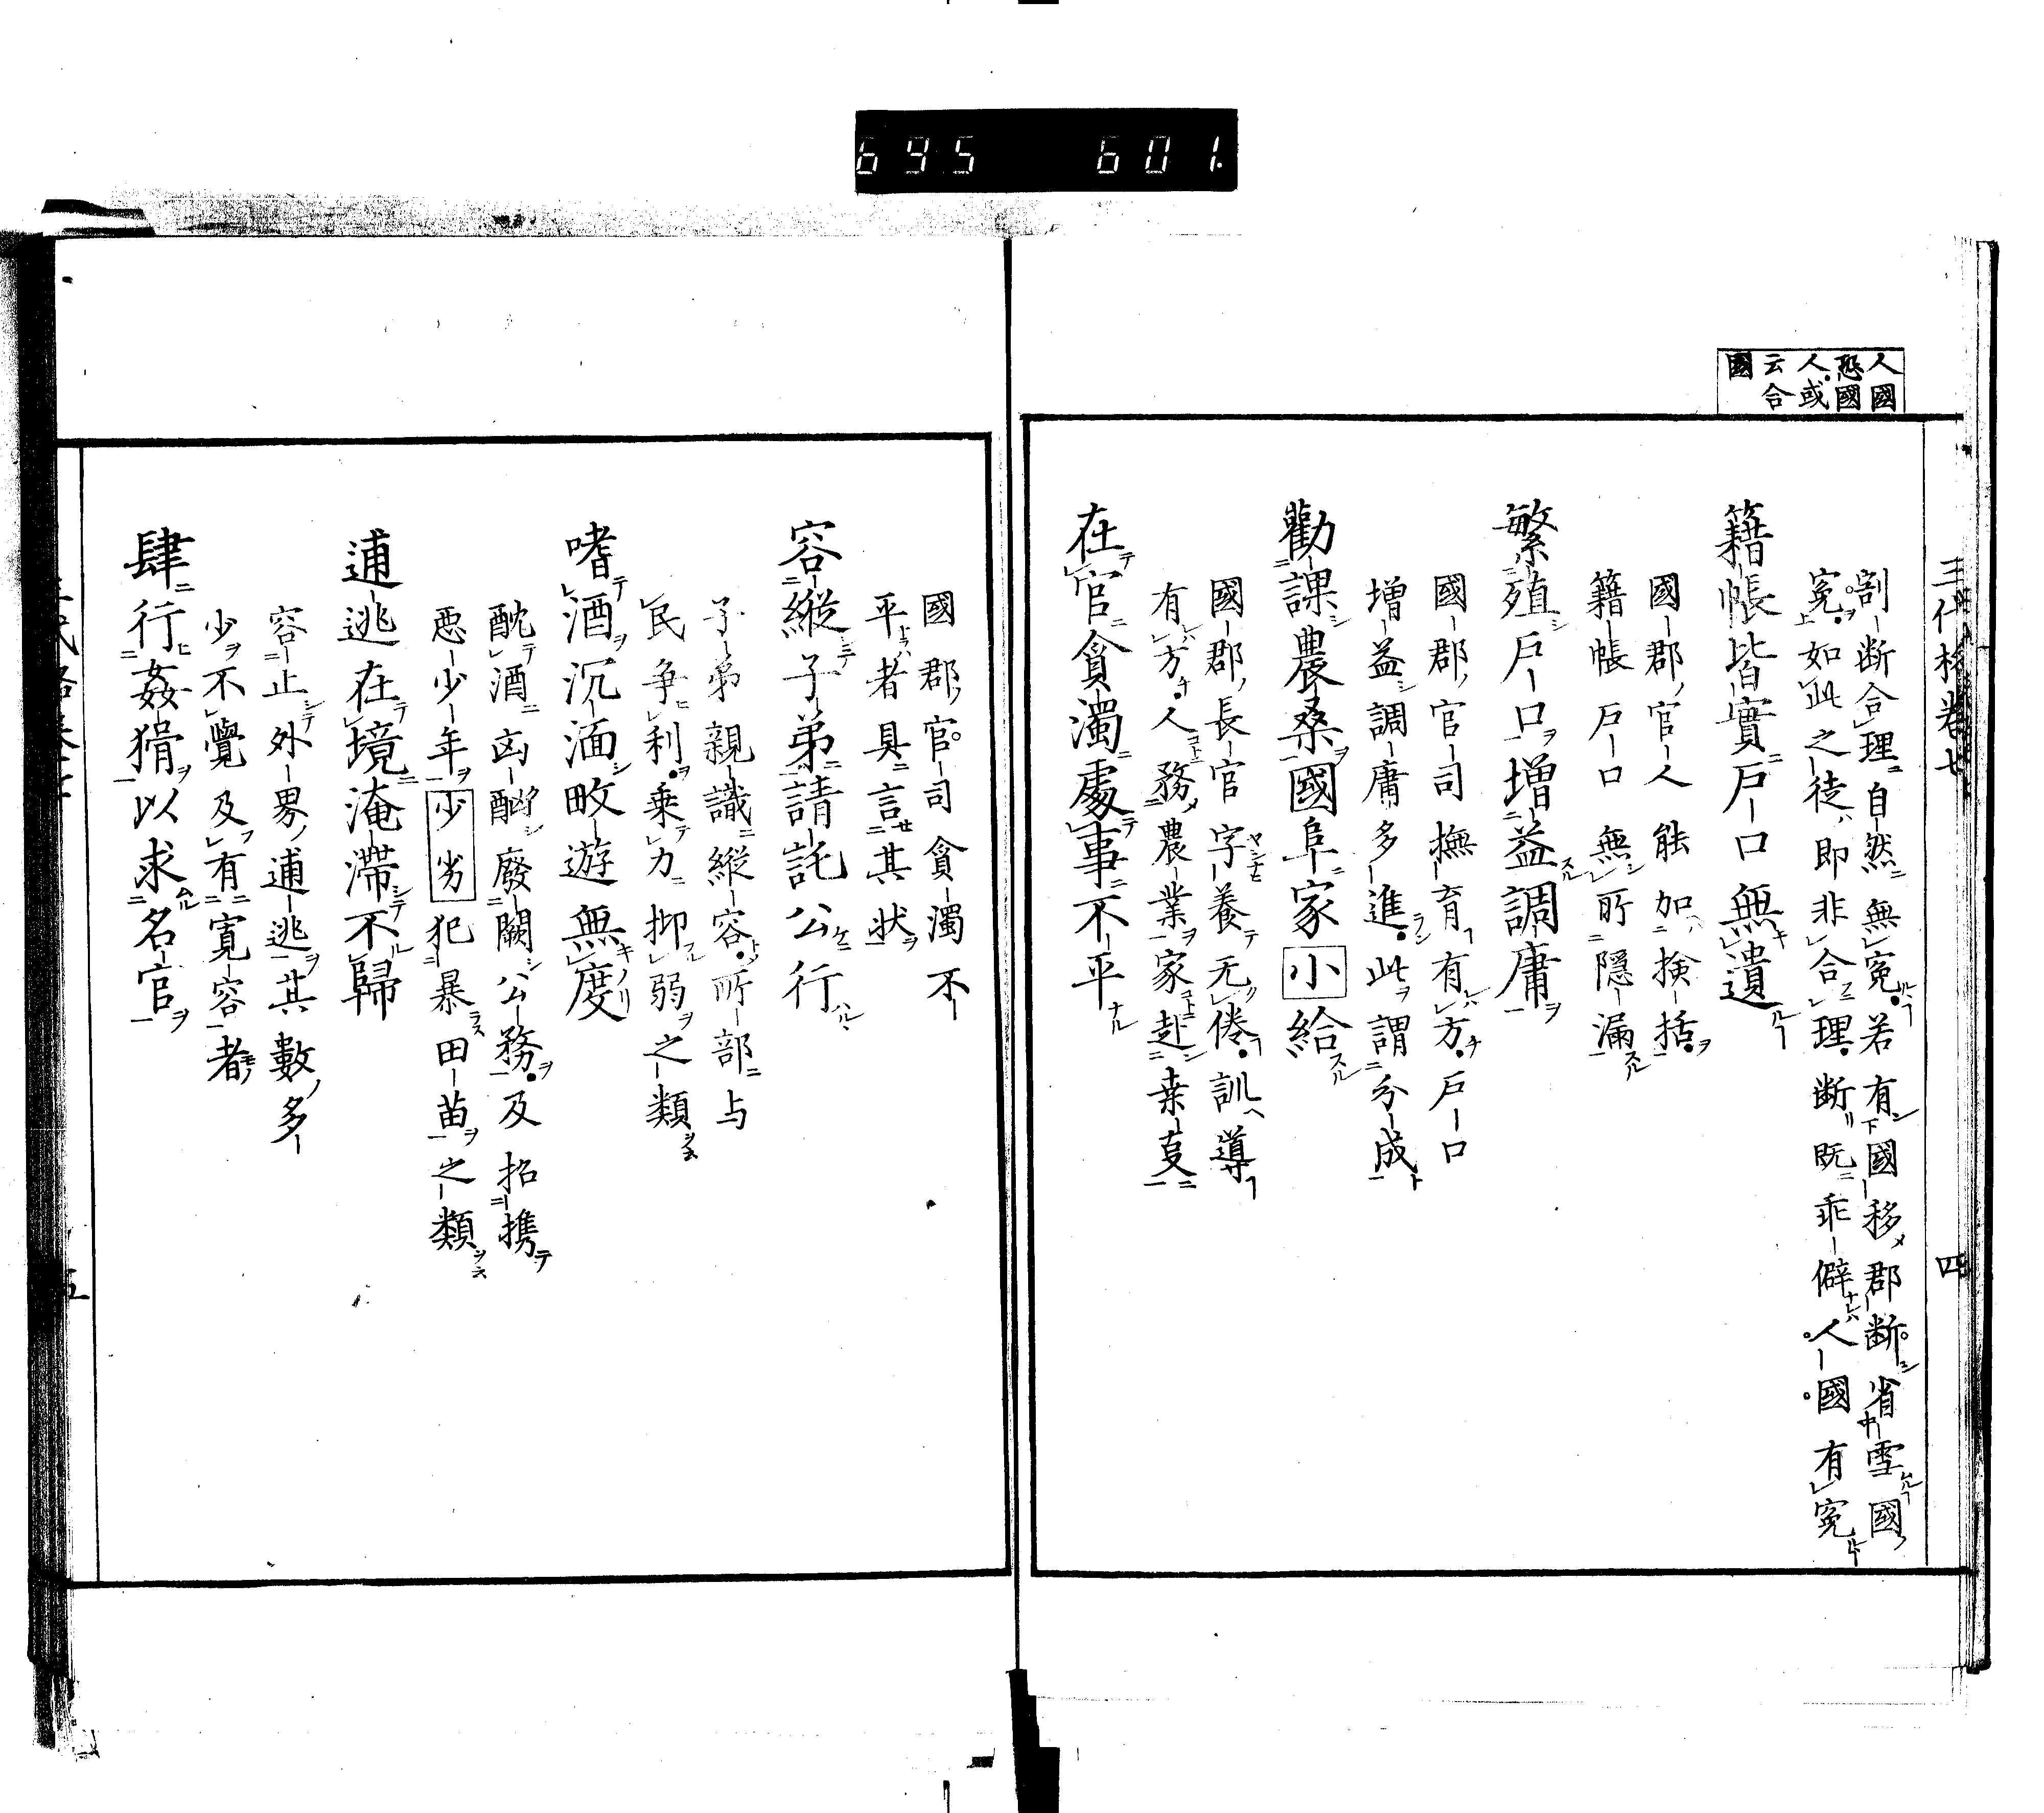 695 601.
人國
恐國
人或
云合
國
三代格卷七 四
割断合理自然無寃若有國移郡断省雪國
寃如此之徒即非合理断既乖僻人國有寃
籍帳皆實戸口無遺
國郡官人能加検括
籍帳戸口無所隠漏
繁殖戸口增益調庸
國郡官司撫育有方戸口
增益調庸多進此謂分成
勸課農桒國阜家小給
國郡長官字養无倦訓導
有方人務農業家赴桒
在官貪濁處事不平
國郡官司貪濁不
平者具言其状
容縦子弟請託公行
子弟親識縦容所部与
民争利乗力抑弱之類
嗜酒沉湎畋遊無度
酖酒凶酗廢闕公務及招携
惡少年少劣犯暴田苗之類
逋逃在境淹滯不歸
容止外界逋逃其數多
少不覺及有寛容者
肆行姦猾以求名官
五